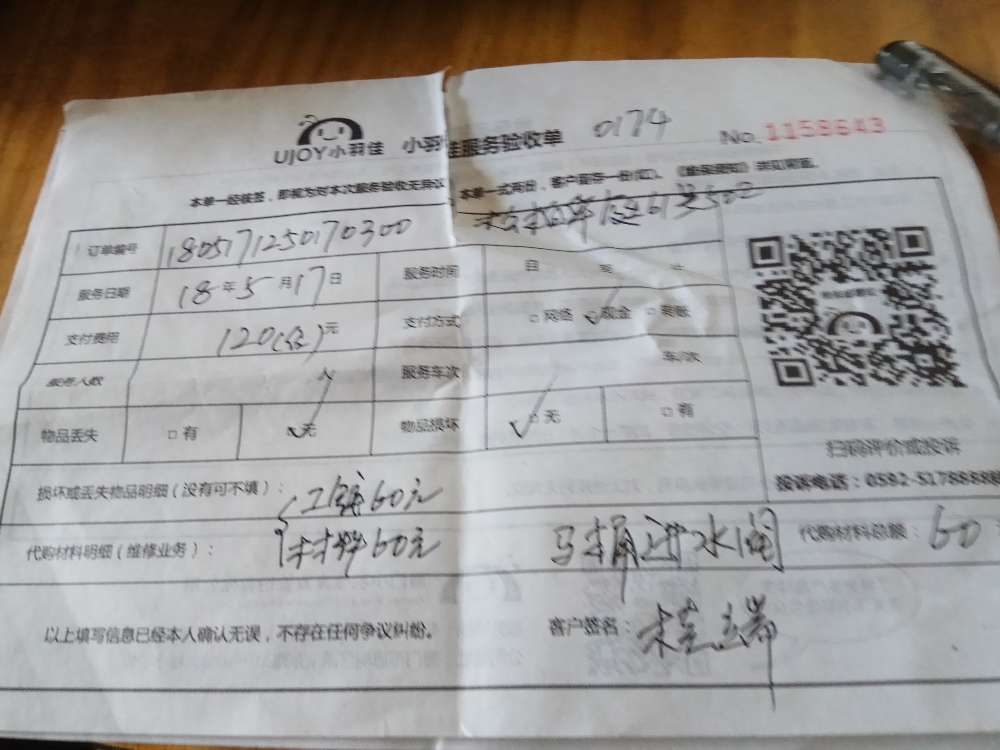 UJOY小羽佳 小羽佳服务验收单 0174 No. 1158643
本单一经核签，即视为对本次服务验收无异议，本单一式两份，客户留存一份(红)。
订单编号 1805171250170300
服务日期 18年5月17日 服务时间 自 至 止
支付费用 120 元 支付方式 □网络 ☑现金 □转账
服务人数 人 服务车次 车/次
物品丢失 □有 ☑无 物品损坏 ☑无 □有
扫码评价或投诉
损坏或丢失物品明细（没有可不填）： 工钱60元 投诉电话：0592-5178888
代购材料明细（维修业务）： 材料60元 马桶进水阀 代购材料总额：60
以上填写信息已经本人确认无误，不存在任何争议纠纷。 客户签名：